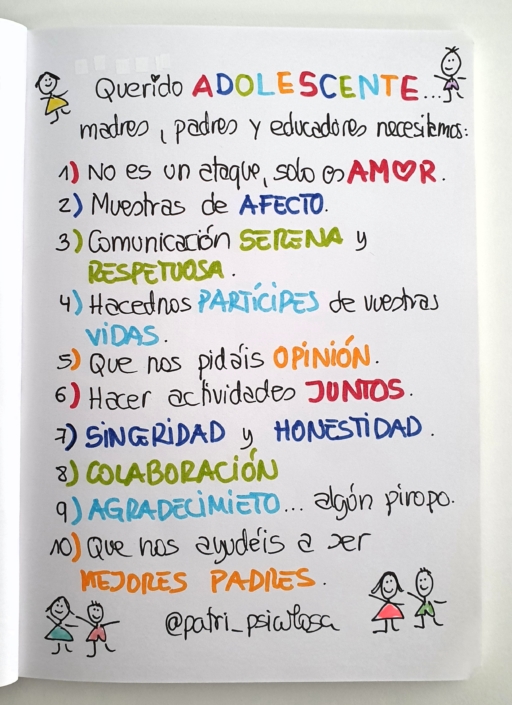 Querido ADOLESCENTE...
madres, padres y educadores necesitamos:
1) No es un ataque, solo es AMOR.
2) Muestras de AFECTO.
3) Comunicación SERENA y
RESPETUOSA.
4) Hacednos PARTÍCIPES de vuestras
VIDAS.
5) Que nos pidáis OPINIÓN.
6) Hacer actividades JUNTOS.
7) SINCERIDAD y HONESTIDAD.
8) COLABORACIÓN
9) AGRADECIMIETO... algún piropo.
10) Que nos ayudéis a ser
MEJORES PADRES.
@patri_psicolosa